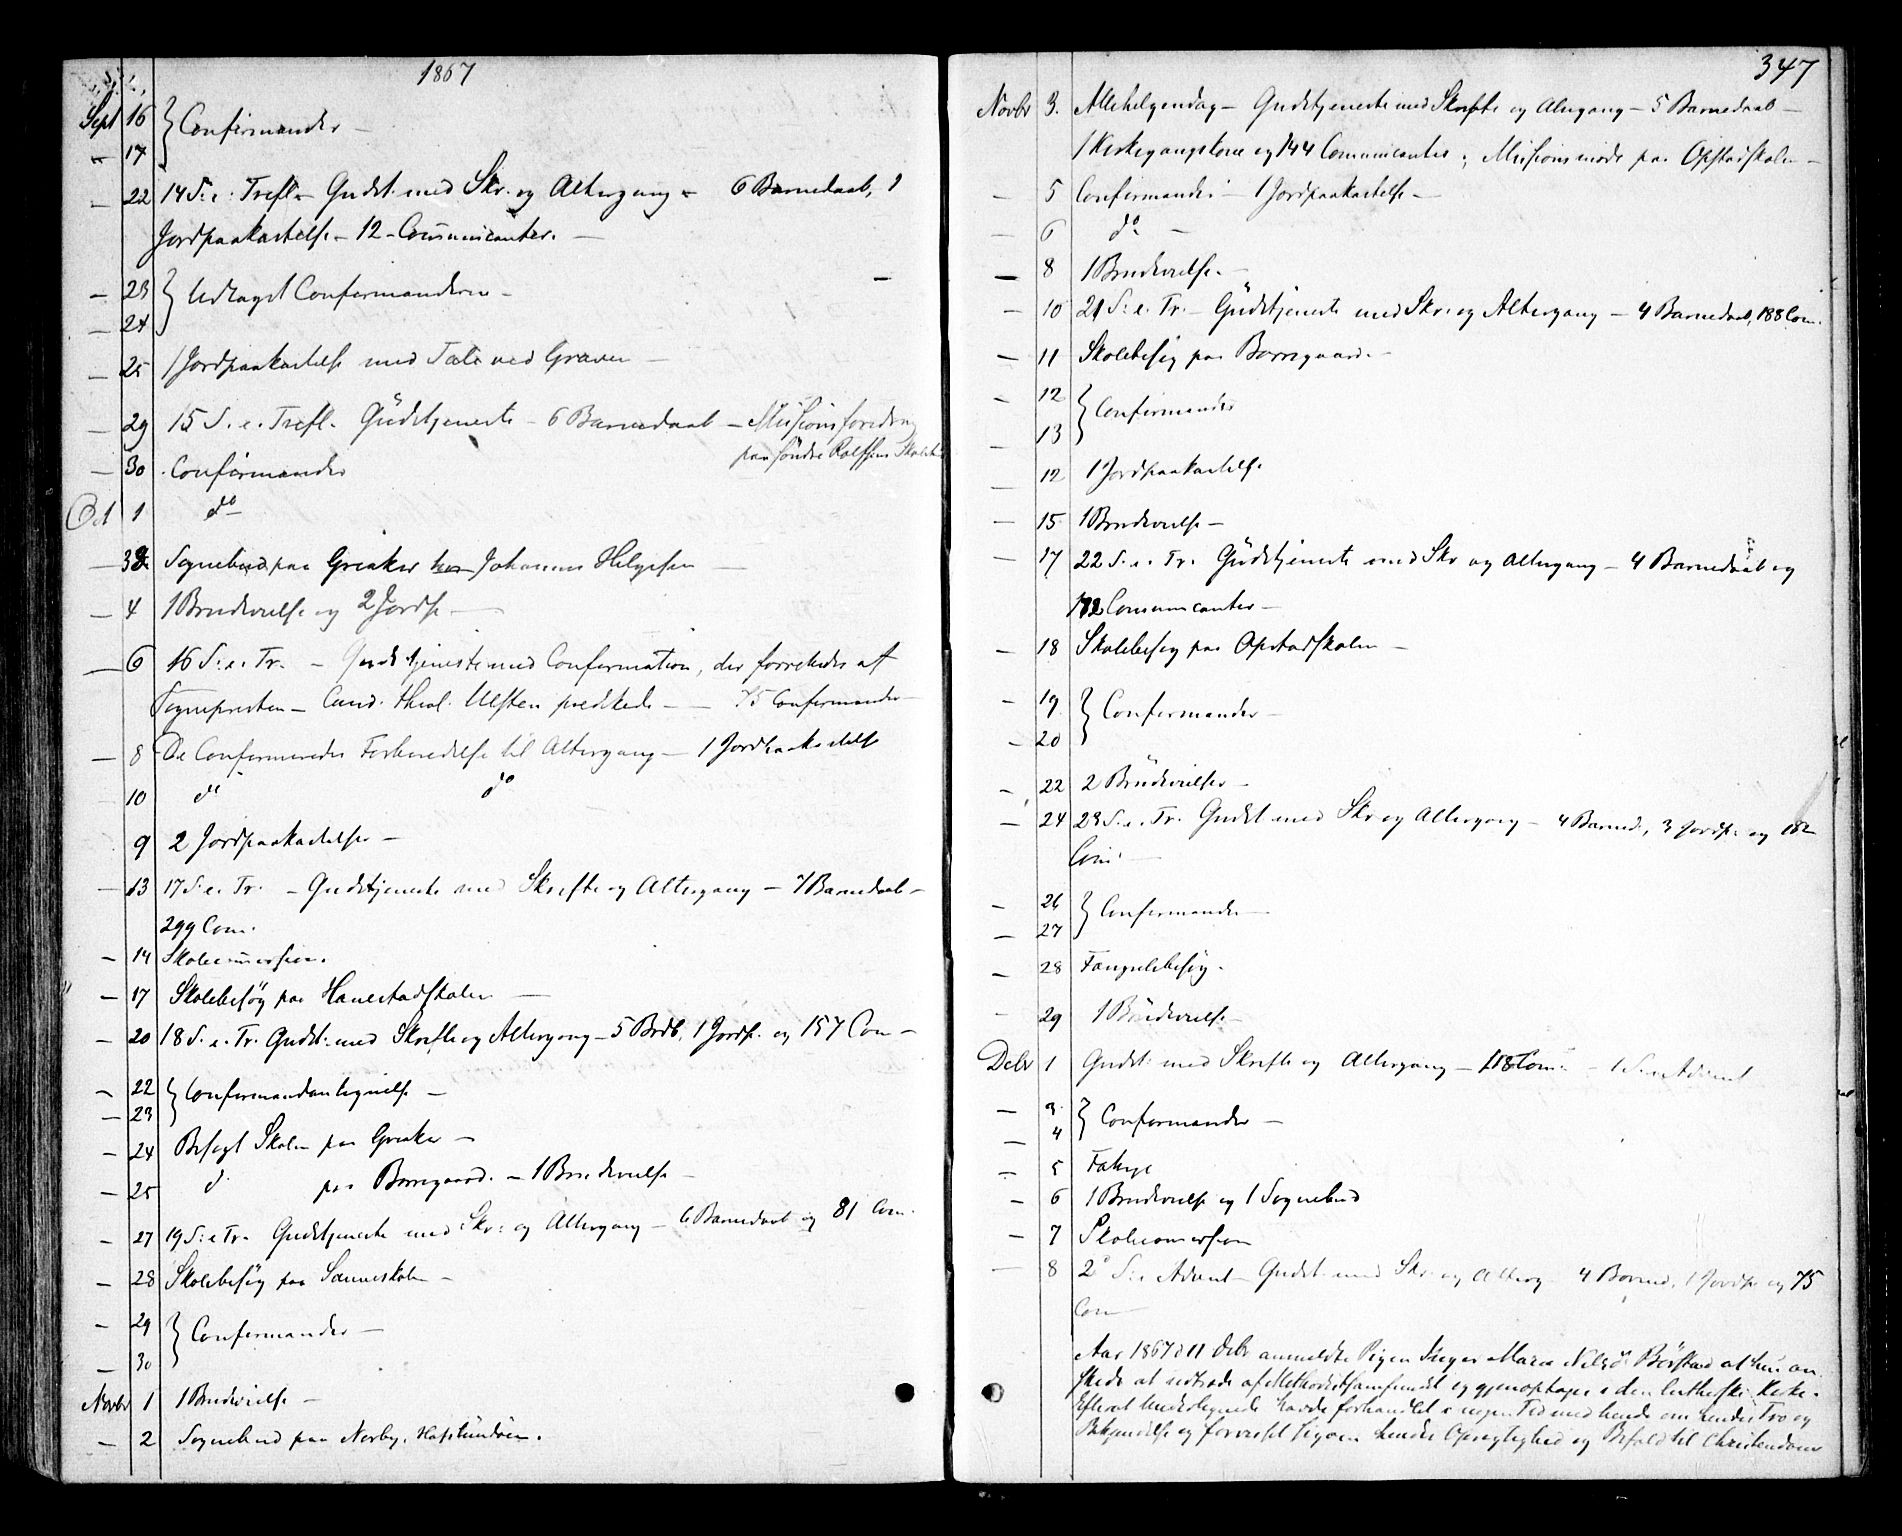 1867
Sept 16 } Confirmander —
— 17
— 22 14 S. e. Trefl. — Gudst. med Skr. og Altergang — 6 Barnedaab, 1
Jordpaakastelse — 12 Communicanter. —
— 23 } Udtaget Confirmanderne —
— 24
— 25 1 Jordpaakastelse med Tale ved Graven —
— 29 15 S. e. Trefl. Gudstjeneste — 6 Barnedaab — Missionsforedrag
paa Söndre
— 30 Confirmander
Oct 1 do
— 3 Sognebud paa Greaker hos Johannes Helgesen —
— 4 1 Brudevielse og 2 Jordp. —
— 6 16 S. e. Tr. — Gudstjeneste med Confirmation, der forrettedes af
Sognepresten — Cand. theol. prædikede — 75 Confirmander
— 8 De Confirmeredes Forberedelse til Altergang — 1 Jordpaakastelse
10 do do
9 2 Jordpaakastelser —
— 13 17 S. e. Tr. — Gudstjeneste med Skrifte og Altergang — 7 Barnedaab —
299 Com.
— 14 Skolecommission.
— 17 Skolebesög paa Hanestadskolen —
— 20 18 S. e. Tr. Gudst. med Skrifte og Altergang — 5 Brdb. 1 Jordp. og 157 Com —
— 22 } Confirmandantegnelse —
— 23
— 24 Besøgt Skolen paa Greaker —
— 25 do paa Borregaard. — 1 Brudevielse —
— 27 19 S. e. Tr. Gudstjeneste med Skr. og Altergang — 6 Barnedaab og 81 Com.
— 28 Skolebesög paa Sanneskolen —
— 29 } Confirmander —
— 30
Novbr 1 1 Brudevielse —
— 2 Sognebud paa Nordby, Hafslundseien.
347
Novbr 3. Allehelgendag — Gudstjeneste med Skrifte og Altergang — 5 Barnedaab —
1 Kirkegangskone og 144 Communicanter, Missionsmöde paa Opstadskolen —
— 5 Confirmander — 1 Jordpaakastelse —
— 6 do —
— 8 1 Brudevielse. —
— 10 21 S. e. Tr. — Gudstjeneste med Skr. og Altergang — 4 Barnedaab, 188 Com.
— 11 Skolebesög paa Borregaard. —
— 12 } Confirmander
— 13
— 12 1 Jordpaakastelse
— 15 1 Brudevielse —
— 17 22 S. e. Tr. Gudstjeneste med Skr og Altergang — 4 Barnedaab og
112 Communicanter —
— 18 Skolebesög paa Opstadskolen —
— 19 } Confirmander —
— 20
— 22 2 Brudevielser —
— 24 23 S. e. Tr. Gudst. med Skr og Altergang — 4 Barned., 3 Jordp. og 182
Com. —
— 26 } Confirmander —
— 27
— 28 Fangebesög.
— 29 1 Brudevielse —
Debr 1 Gudst. med Skrifte og Altergang — 118 Com. — 1 Sön Advent
— 3 } Confirmander —
— 4
— 5
— 6 1 Brudevielse og 1 Sognebud
— 7 Skolecommission
— 8 2 S. i Advent — Gudst. med Skr. og Alterg — 4 Barned. 1 Jordp og 75
Com —
Aar 1867 d 11 Debr anmeldte Pigen Inger Maria Nilsd. Börstad at hun ön
skede at udtræde af Methodistsamfundet og gjenoptages i den lutherske Kirke.
Efterat Undertegnede havde forhandlet i nogen Tid med hende om hendes Tro og
Bekjendelse og forvisset sig om hendes Oprigtighed og til Christendom